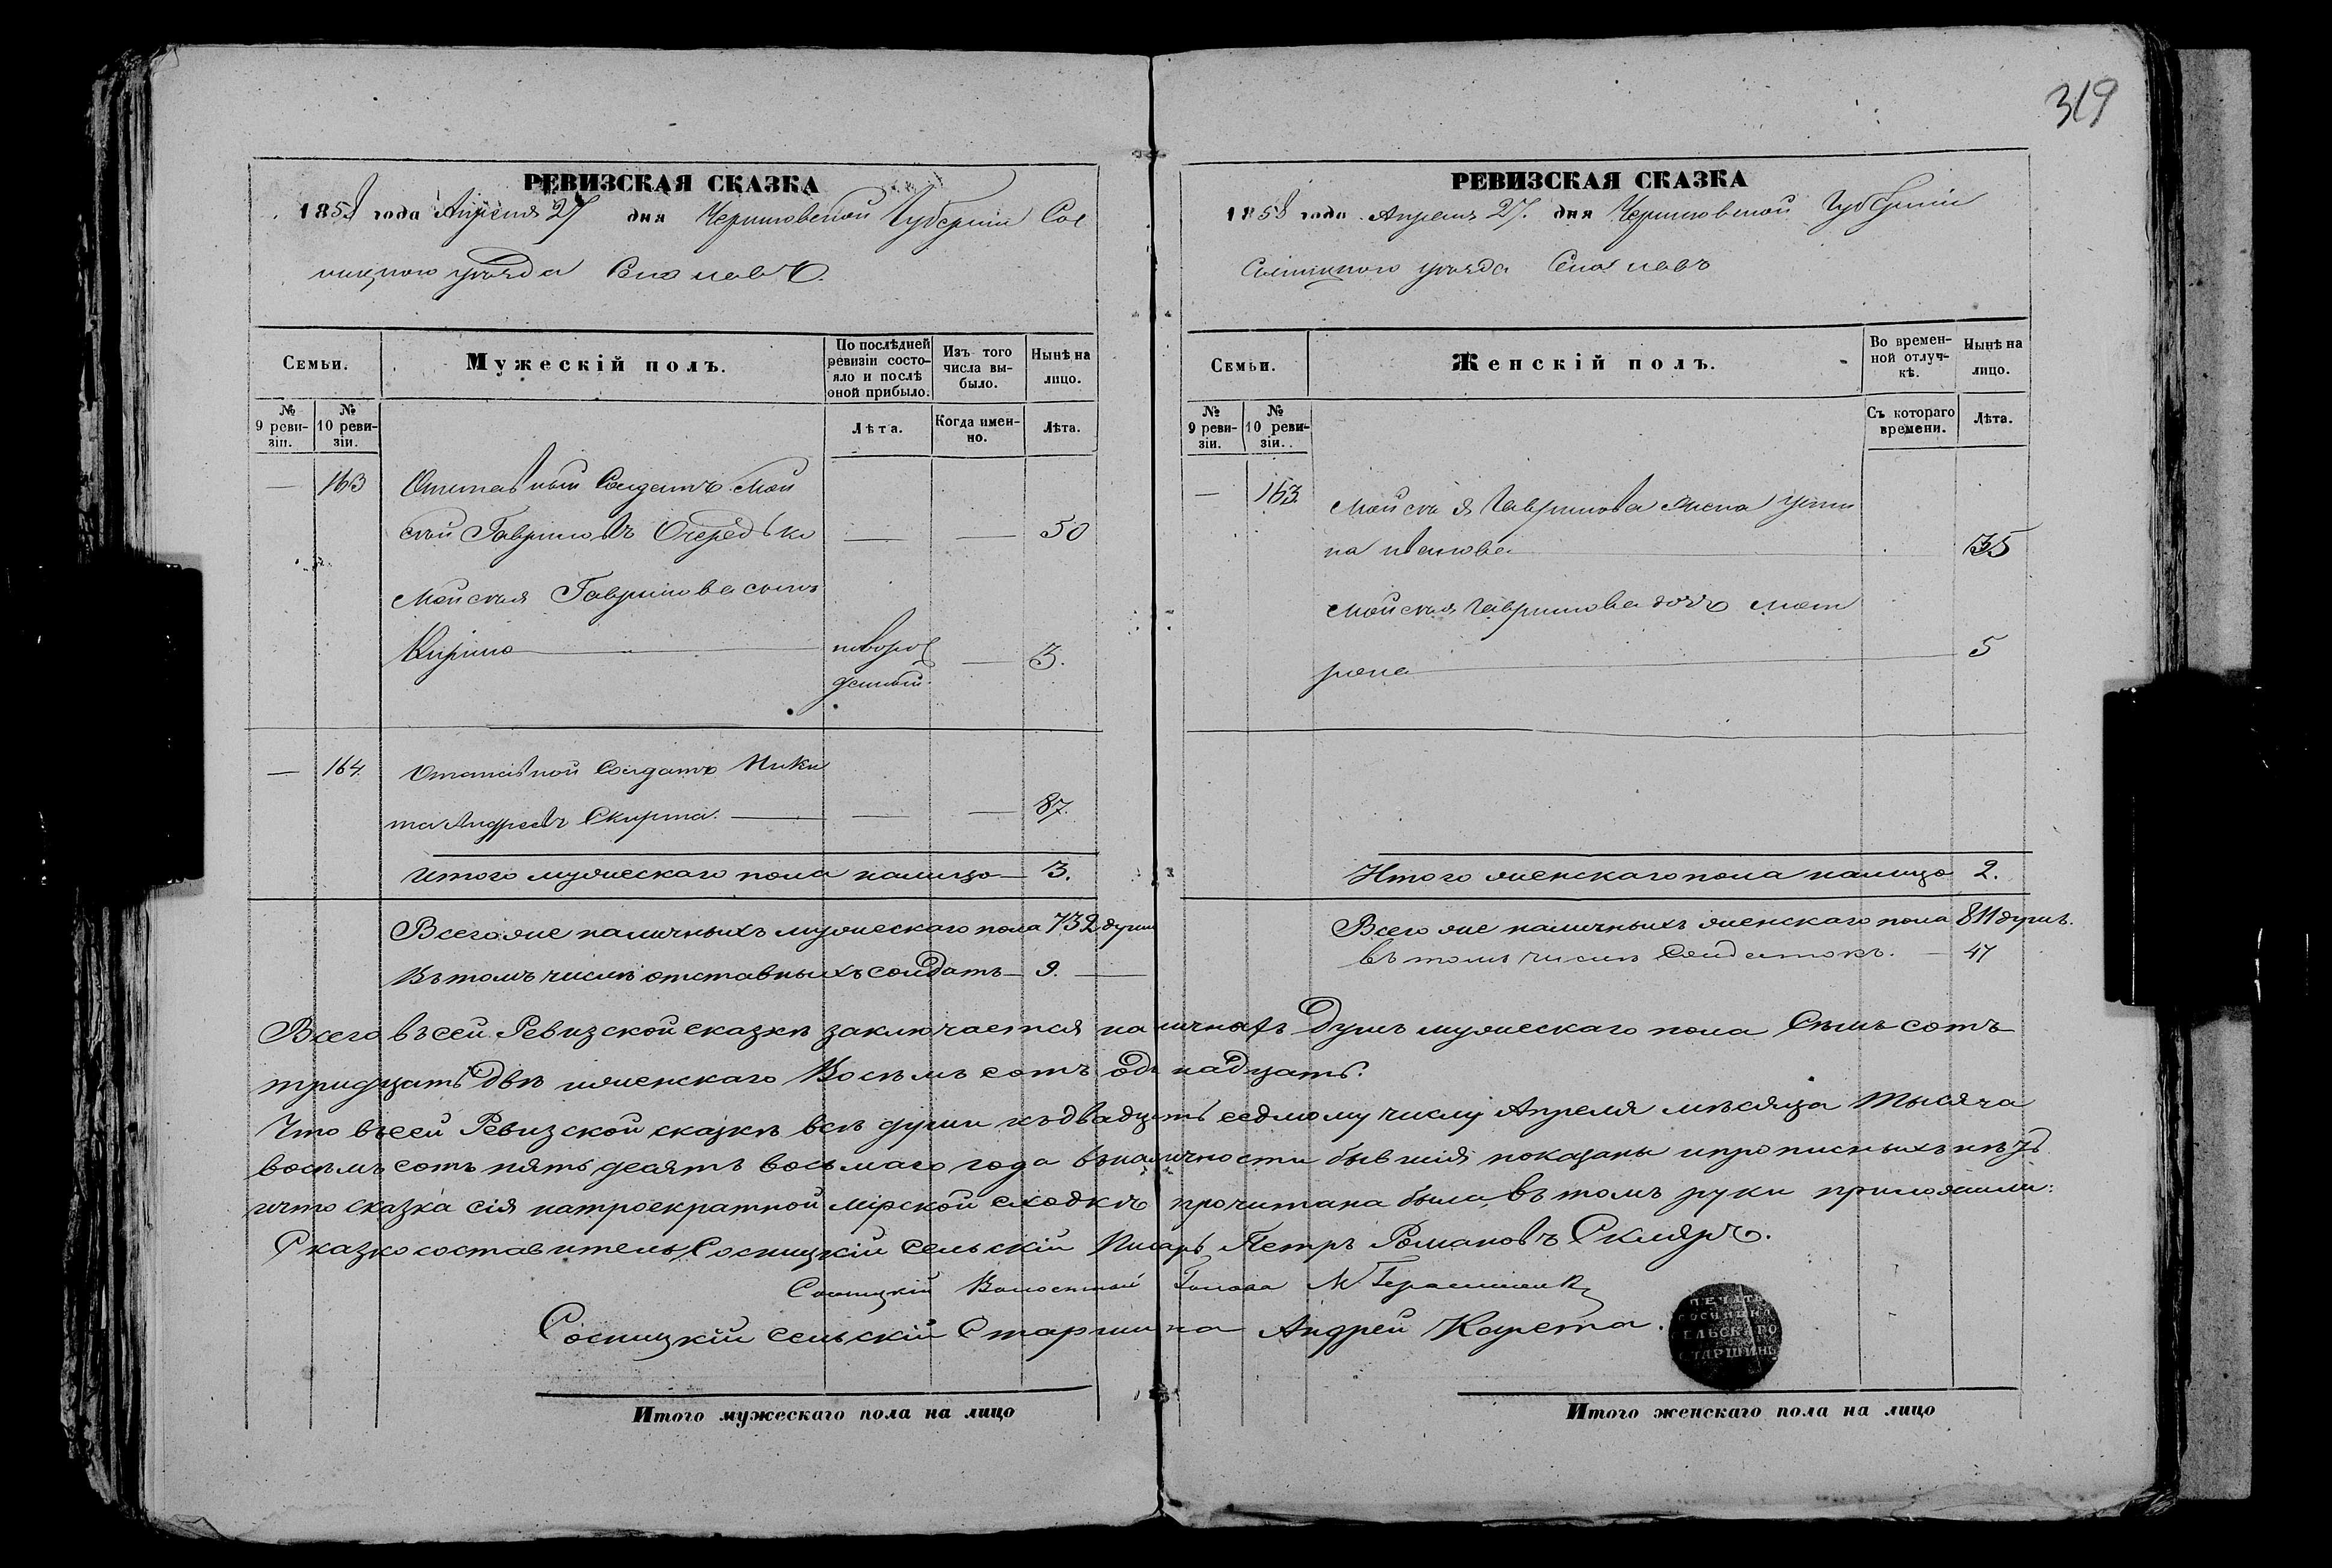 319
РЕВИЗСКАЯ СКАЗКА
1858 года Апреля 27 дня Черниговской Губерніи Сос
ницкого уезда
Семьи.
Мужескій полъ.
По послѣдней ревизіи состояло и послѣ оной прибыло.
Изъ того числа выбыло.
Нынѣ на лицо.
№ 9 ревизіи.
№ 10 ревизіи.
Лѣта.
Когда именно.
Лѣта.
— 163 Отставный Солдатъ Мои
сей Гавриловъ Очередько — — 50
Моисея Гаврилова сынъ
Кирило — новорож — 3.
денный.
— 164. Отставной Солдатъ Ники
та Андреевъ Скирта. — — — 87.
Итого мужескаго пола налицо — 3.
Всего же наличныхъ мужескаго пола 732 души
Въ томъ числѣ отставныхъ солдатъ — 9. —
РЕВИЗСКАЯ СКАЗКА
1858 года Апреля 27. дня Черниговской Губерніи
Сосницкого уезда
Семьи.
Женскій полъ.
Во временной отлучкѣ.
Нынѣ на лицо.
№ 9 ревизіи.
№ 10 ревизіи.
Съ котораго времени.
Лѣта.
— 163. Моисея Гаврилова жена Ули
на Иванова — 35
Моисея Гаврилова дочь Мат
рона — 5
Итого женскаго пола налицо 2.
Всего же наличныхъ женскаго пола 811 душъ.
въ томъ числѣ Солдатокъ. — 47
Всего въ сей Ревизской сказкѣ заключается наличныхъ Душъ мужескаго пола Семь сотъ
тридцать двѣ и женскаго Восемь сотъ одинадцать.
Что въ сей Ревизской сказкѣ всѣ души къ двадцать седмому числу Апреля мѣсяца тысяча
восемь сотъ пять десятъ восьмаго года въ наличности бывшія показаны и прописныхъ нѣтъ
и что сказка сія на троекратной мірской сходкѣ прочитана была, въ томъ руки приложили:
Сказкосоставитель Сосницкій Сельскій Писарь Петръ Романовъ Скляръ.
Сосницкій Волостный Голова М Герасименко
Сосницкій сельскій Старшина Андрей Карета.
ПЕЧАТЬ
СОСНИЦКА
СЕЛЬСКАГО
СТАРШИНЫ
Итого мужескаго пола на лицо
Итого женскаго пола на лицо